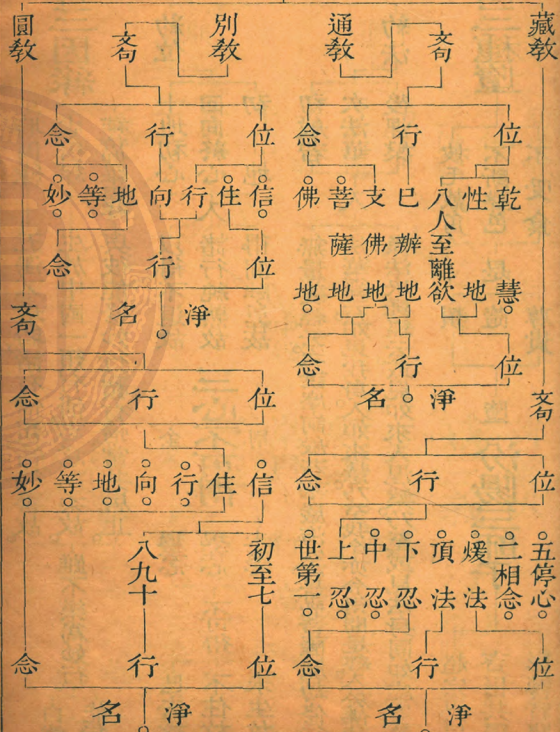 藏教
通教
別教
圓教
文句
文句
位
行
念
位
行
念
乾慧
性地
八人至離欲
巳辦地
支佛地
菩薩地
佛地
信
住
行
向
地
等
妙
位
行
念
位
行
念
淨名
淨名
文句
文句
位
行
念
位
行
念
五停心
二相念
煖法
頂法
下忍
中忍
上忍
世第一
信
住
行
向
地
等
妙
初至七
八九十
位
行
念
位
行
念
淨名
淨名